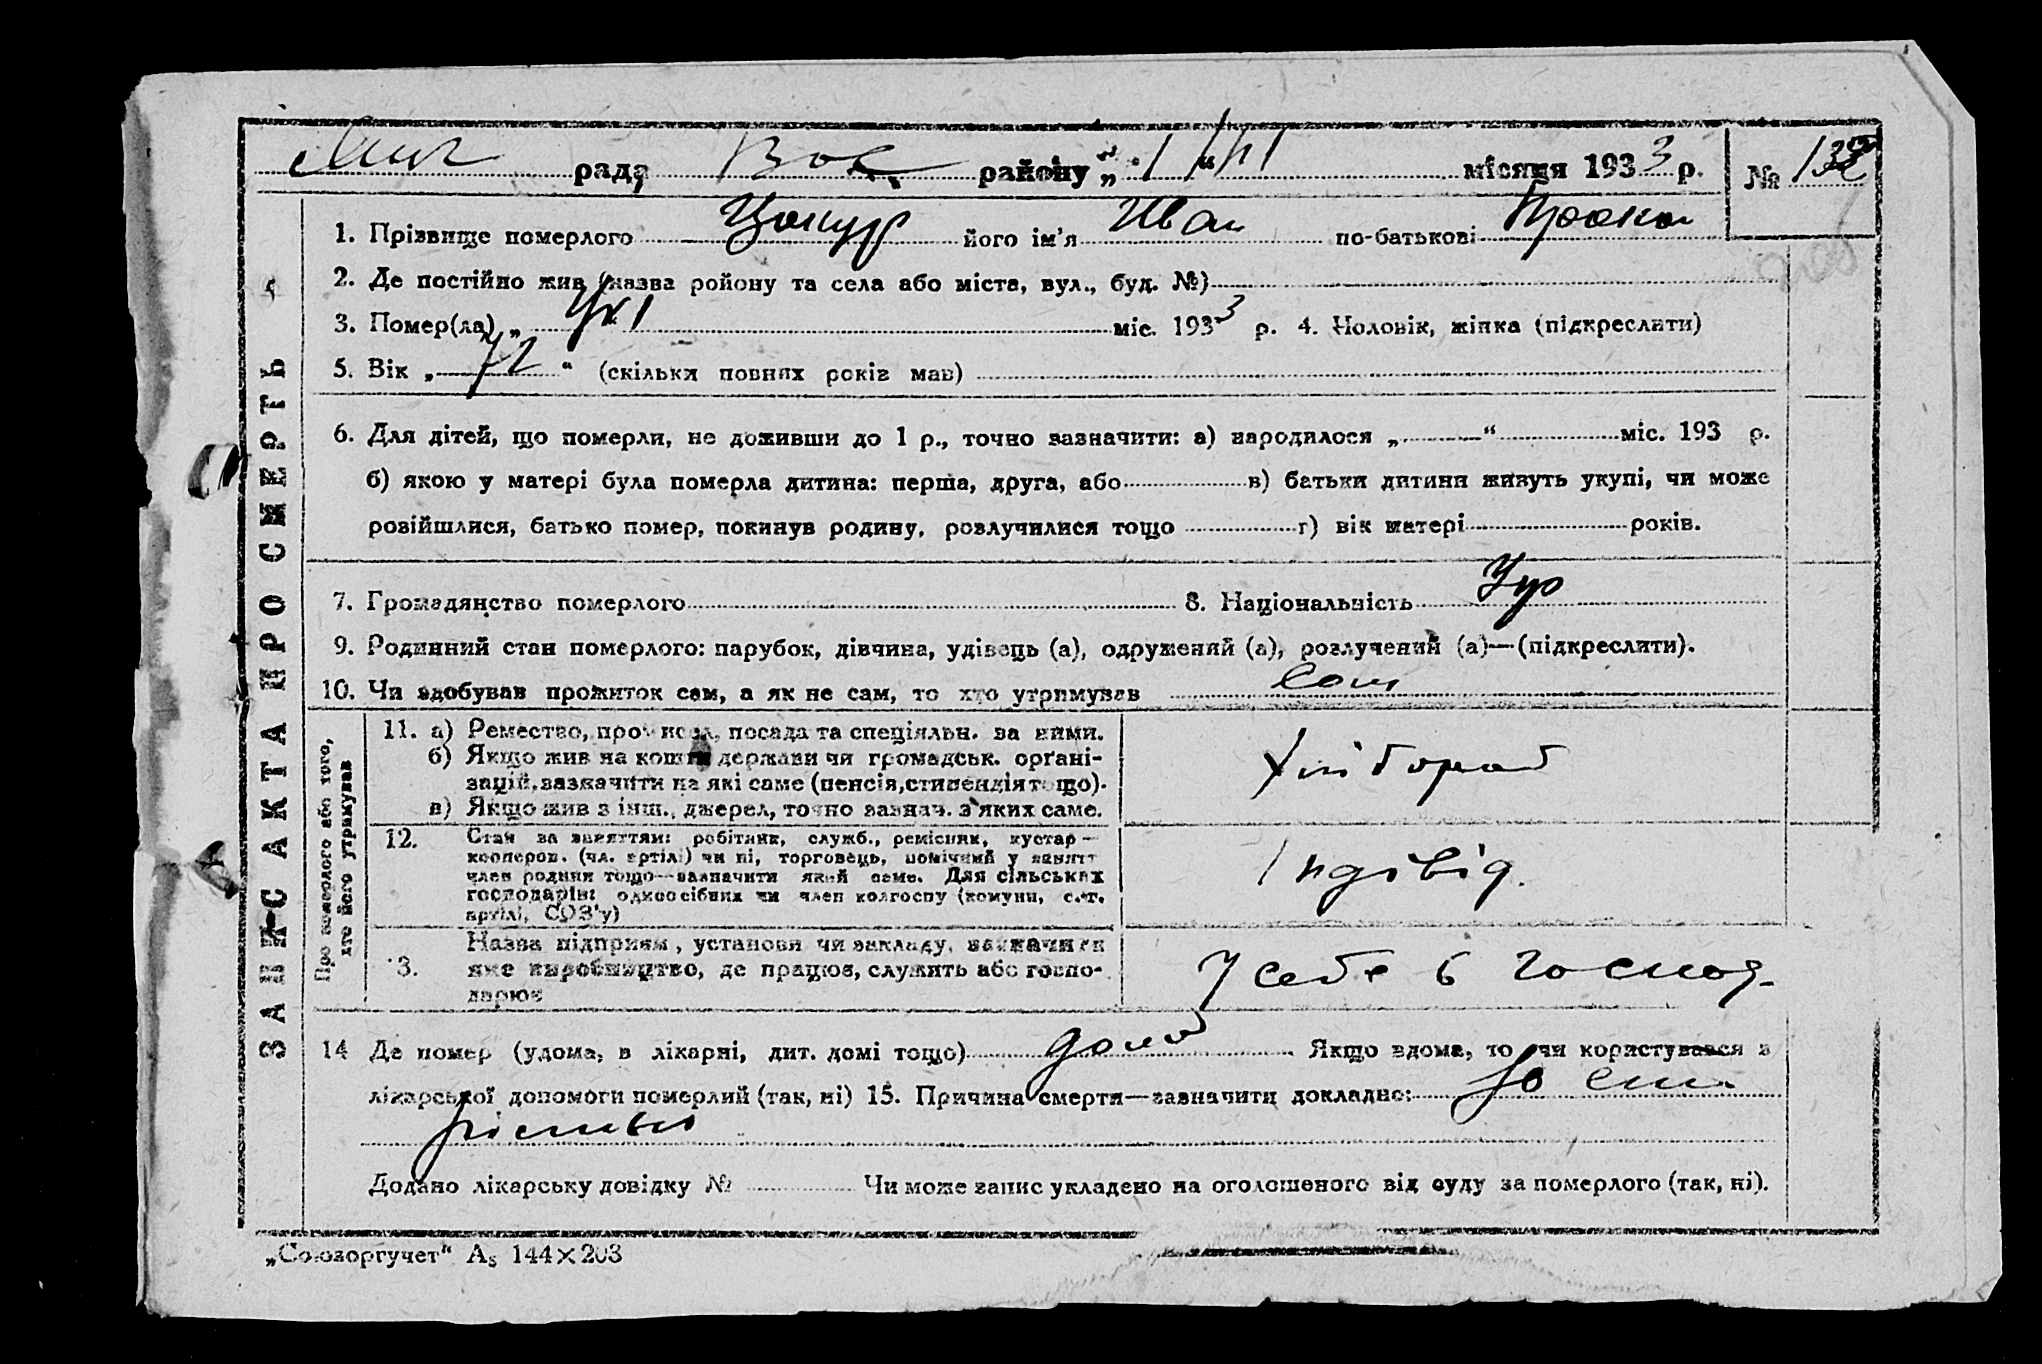 рада Вов районну „ 1 “ VII місяця 1933 р. № 132
1. Прізвище померлого Цокур його ім'я Іван по-батькові
2. Де постійно жив (назва ройону та села або міста, вул., буд. №)
3. Помер(ла) „ міс. 1933 р. 4. Чоловік, жінка (підкреслити)
5. Вік „ 72 “ (скільки повних років мав)
6. Для дітей, що померли, не доживши до 1 р., точно зазначити: а) народилося „ “ міс. 193 р.
б) якою у матері була померла дитина: перша, друга, або в) батьки дитини живуть укупі, чи може
розійшлися, батько помер, покинув родину, розлучилися тощо г) вік матері років.
7. Громадянство померлого 8. Національність Укр
9. Родинний стан померлого: парубок, дівчина, удівець (а), одружений (а), розлучений (а)—(підкреслити).
10. Чи здобував прожиток сам, а як не сам, то хто утримував Сам
ЗАПИС АКТА ПРО СМЕРТЬ
Про померлого або того, хто його утримував
11. а) Ремество, промисел, посада та спеціяльн. за ними.
б) Якщо жив на кошти держави чи громадськ. орґані-
зацій, зазначити на які саме (пенсія, стипендія тощо).
в) Якщо жив з інш., джерел, точно зазнач. з яких саме.
Хлібороб
12. Стан за заняттям: робітник, служб., ремісник, кустар—
кооперов. (чл. артілі) чи ні, торговець, помічний у занятт
член родини тощо—зазначити який саме. Для сільських
господарів: одноосібник чи член колгоспу (комуни, с.-г.
артілі, СОЗ'у)
Індівід.
13. Назва підприєм, установи чи закладу, зазначивши
яке виробництво, де працює, служить або госпо-
дарює
У себе в господ.
14 Де помер (удома, в лікарні, дит. домі тощо) дома Якщо вдома, то чи користувався з
лікарської допомоги померлий (так, ні) 15. Причина смерти—зазначити докладно:
Додано лікарську довідку № Чи може запис укладено на оголошеного від суду за померлого (так, ні).
„Союзоргучет“ А₅ 144×203